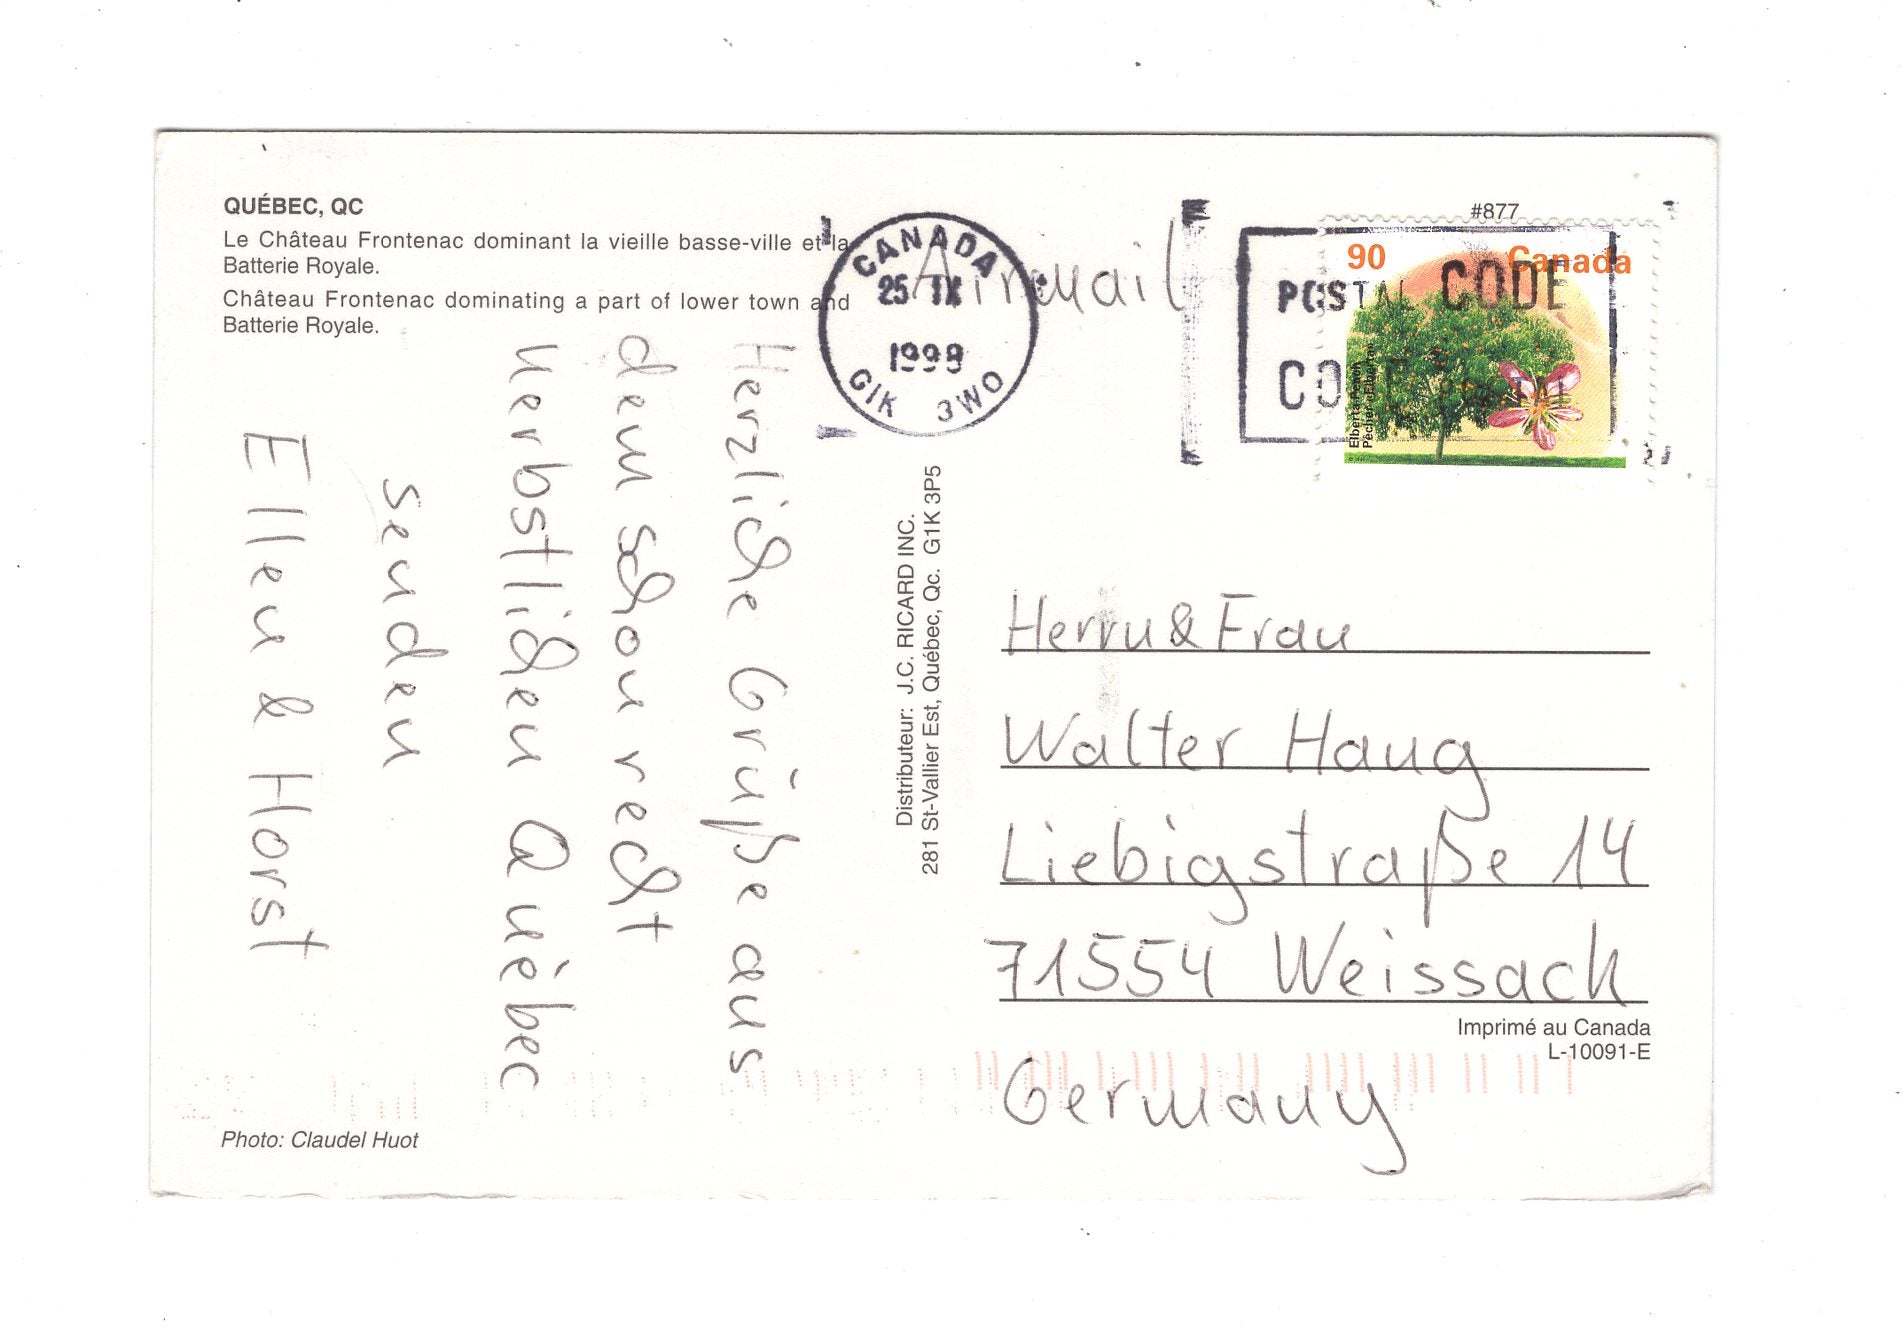 QUÉBEC, QC
Le Château Frontenac dominant la vieille basse-ville et la
Batterie Royale.
Château Frontenac dominating a part of lower town and
Batterie Royale.
Herzliche Grüße aus
dem schon recht
herbstlichen Québec
senden
Ellen & Horst
Photo: Claudel Huot
Distributeur: J.C. RICARD INC.
281 St-Vallier Est, Québec, Qc. G1K 3P5
Airmail
CANADA
25 IX
1998
G1K 3W0
#877
POSTAL CODE
CODE POSTAL
90 Canada
Elberta Peach
Pêcher Elberta
Herrn & Frau
Walter Haug
Liebigstraße 14
71554 Weissach
Germany
Imprimé au Canada
L-10091-E